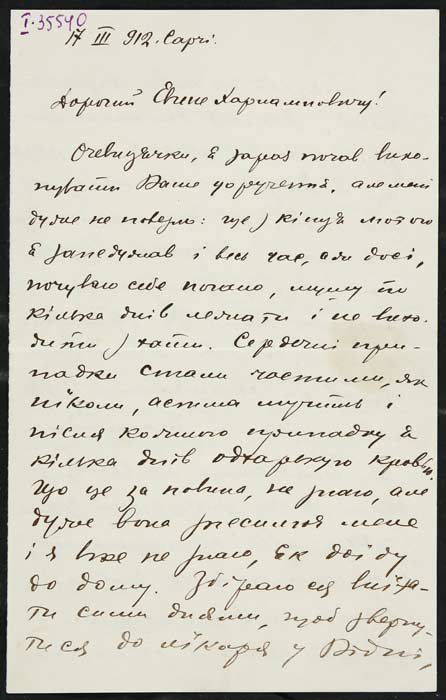 I.35540
17 III 912. Capri.
Дорогий Евгене Харлампович!
Очевидячки, я зараз почав вико-
нувати Ваше доручення, але мені
дуже не повезло: ще з кінця лютого
я занедужав і весь час, аж досі,
почуваю себе погано, мушу то
кілька днів лежати і не вихо-
дити з хати. Сердечні при-
падки стали частими, як
ніколи, астма мучить і
після кожного припадку я
кілька днів одхаркую кров'ю.
Що це за новина, не знаю, але
дуже вона знесилює мене
і я вже не знаю, як доїду
до дому. Збіраюся виїха-
ти сими днями, щоб зверну-
тися до лікаря у Відні,